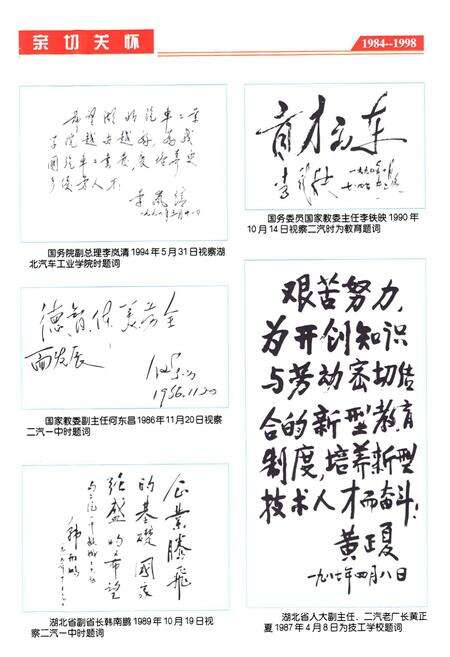 亲切关怀
1984--1998
希望湖北汽车工业
学院越办越好，为我
国汽车工业发展，多培养更
多优秀人才。
李岚清
国务院副总理李岚清1994年5月31日视察湖
北汽车工业学院时题词
育才立车
李铁映
国务委员国家教委主任李铁映1990年
10月14日视察二汽时为教育题词
德智体美劳全
面发展
何东昌
1986.11.20
国家教委副主任何东昌1986年11月20日视察
二汽一中时题词
企业腾飞
的基础国家
强盛的希望
韩南鹏
湖北省副省长韩南鹏1989年10月19日视
察二汽一中时题词
艰苦努力，
为开创知识
与劳动密切结
合的新型教育
制度，培养新型
技术人才而奋斗！
黄正夏
一九八七年四月八日
湖北省人大副主任、二汽老厂长黄正
夏1987年4月8日为技工学校题词